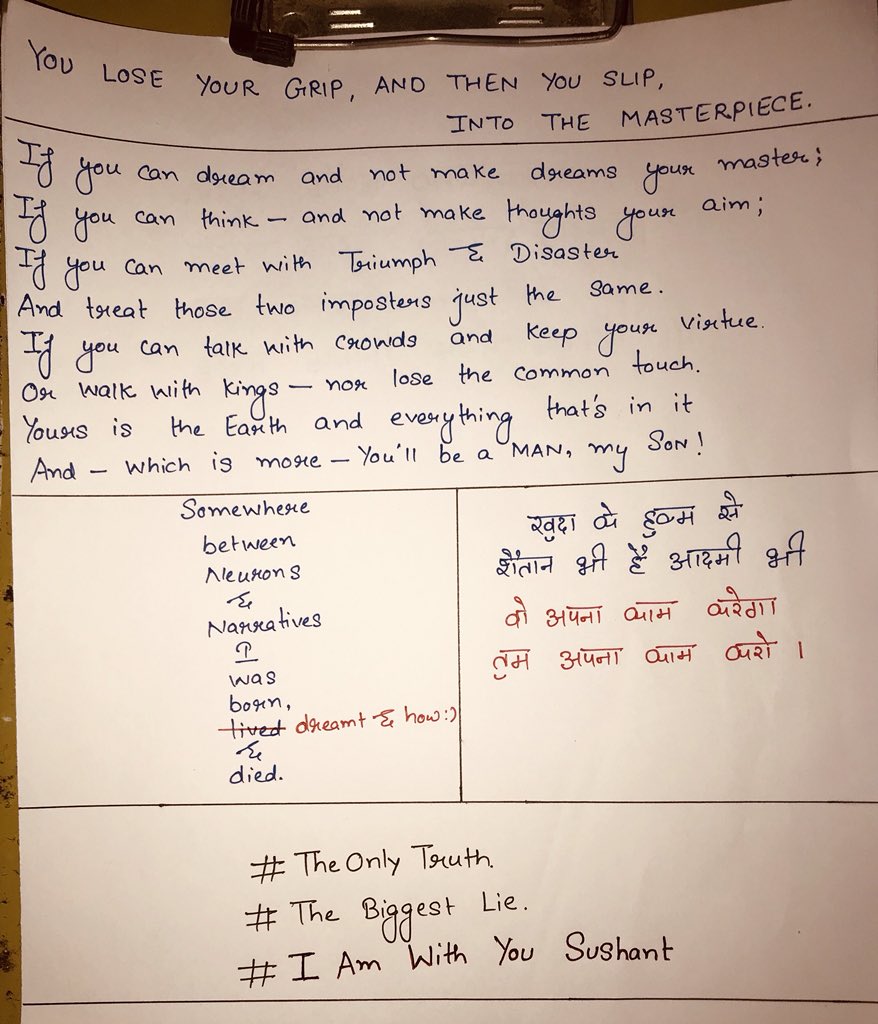 YOU LOSE YOUR GRIP, AND THEN YOU SLIP,
INTO THE MASTERPIECE.
If you can dream and not make dreams your master;
If you can think – and not make thoughts your aim;
If you can meet with Triumph & Disaster
And treat those two imposters just the same.
If you can talk with crowds and keep your virtue.
Or walk with kings – nor lose the common touch.
Yours is the Earth and everything that's in it
And – which is more – You'll be a MAN, my SON!
Somewhere
between
Neurons
&
Narratives
I
was
born,
lived dreamt & how:)
&
died.
खुदा के हुक्म से
शैतान भी हैं आदमी भी
वो अपना काम करेगा।
तुम अपना काम करो ।
# The Only Truth.
# The Biggest Lie.
# I Am With You Sushant